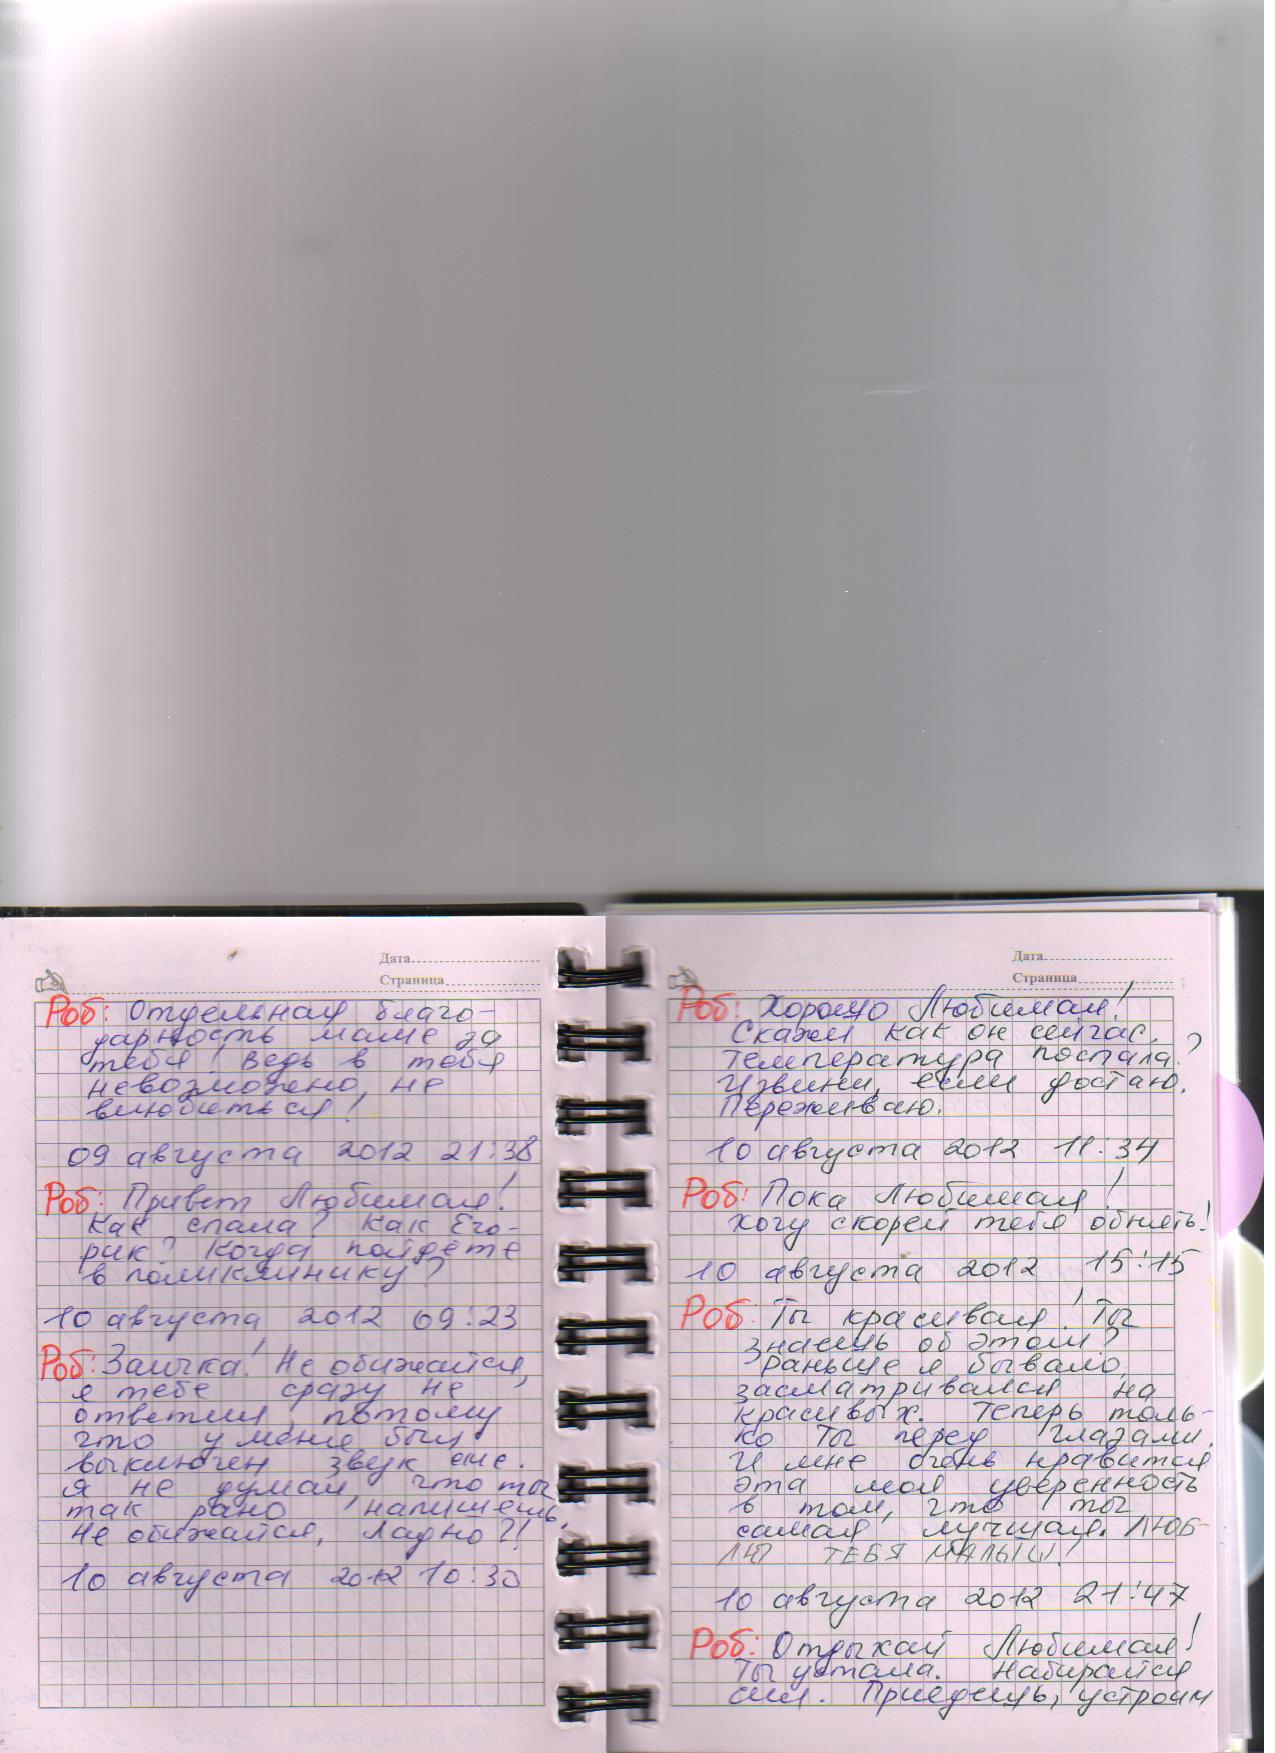 Дата
Страница
Роб: Отдельная благо-
дарность маме за
тебя! Ведь в тебя
невозможно не
влюбиться!
09 августа 2012 21:38
Роб: Привет Любимая!
Как спала? Как Его-
рик? Когда пойдёте
в поликлинику?
10 августа 2012 09:23
Роб: Заичка! Не обижайся,
я тебе сразу не
ответил, потому
что у меня был
выключен звук еще.
Я не думал, что ты
так рано напишешь,
Не обижайся, Ладно?!
10 августа 2012 10:30
Дата
Страница
Роб: Хорошо Любимая!
Скажи как он сейчас,
температура поспала?
Извини, если достаю.
Переживаю.
10 августа 2012 11:34
Роб: Пока Любимая!
хочу скорей тебя обнять!
10 августа 2012 15:15
Роб: Ты красивая! Ты
знаешь об этом?
раньше я бывало,
засматривался на
красивых. Теперь толь-
ко Ты перед глазами.
И мне очень нравится
эта моя уверенность
в том, что ты
самая лучшая. ЛЮБ-
ЛЮ ТЕБЯ МАЛЫШ!
10 августа 2012 21:47
Роб: Отдыхай Любимая!
Ты устала. Набирайся
сил. Приедешь, устроим